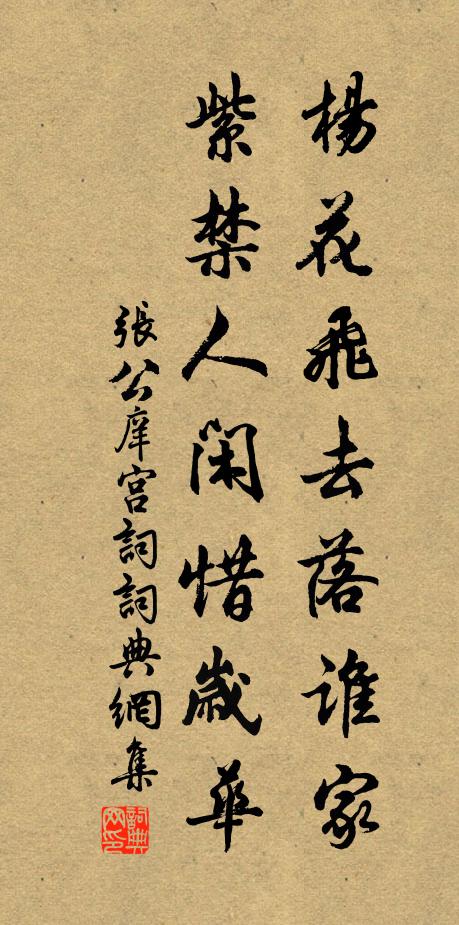 楊花飛去落誰家
紫禁人闲惜歳華
張公庠宮詞詞典網集
詞典網印